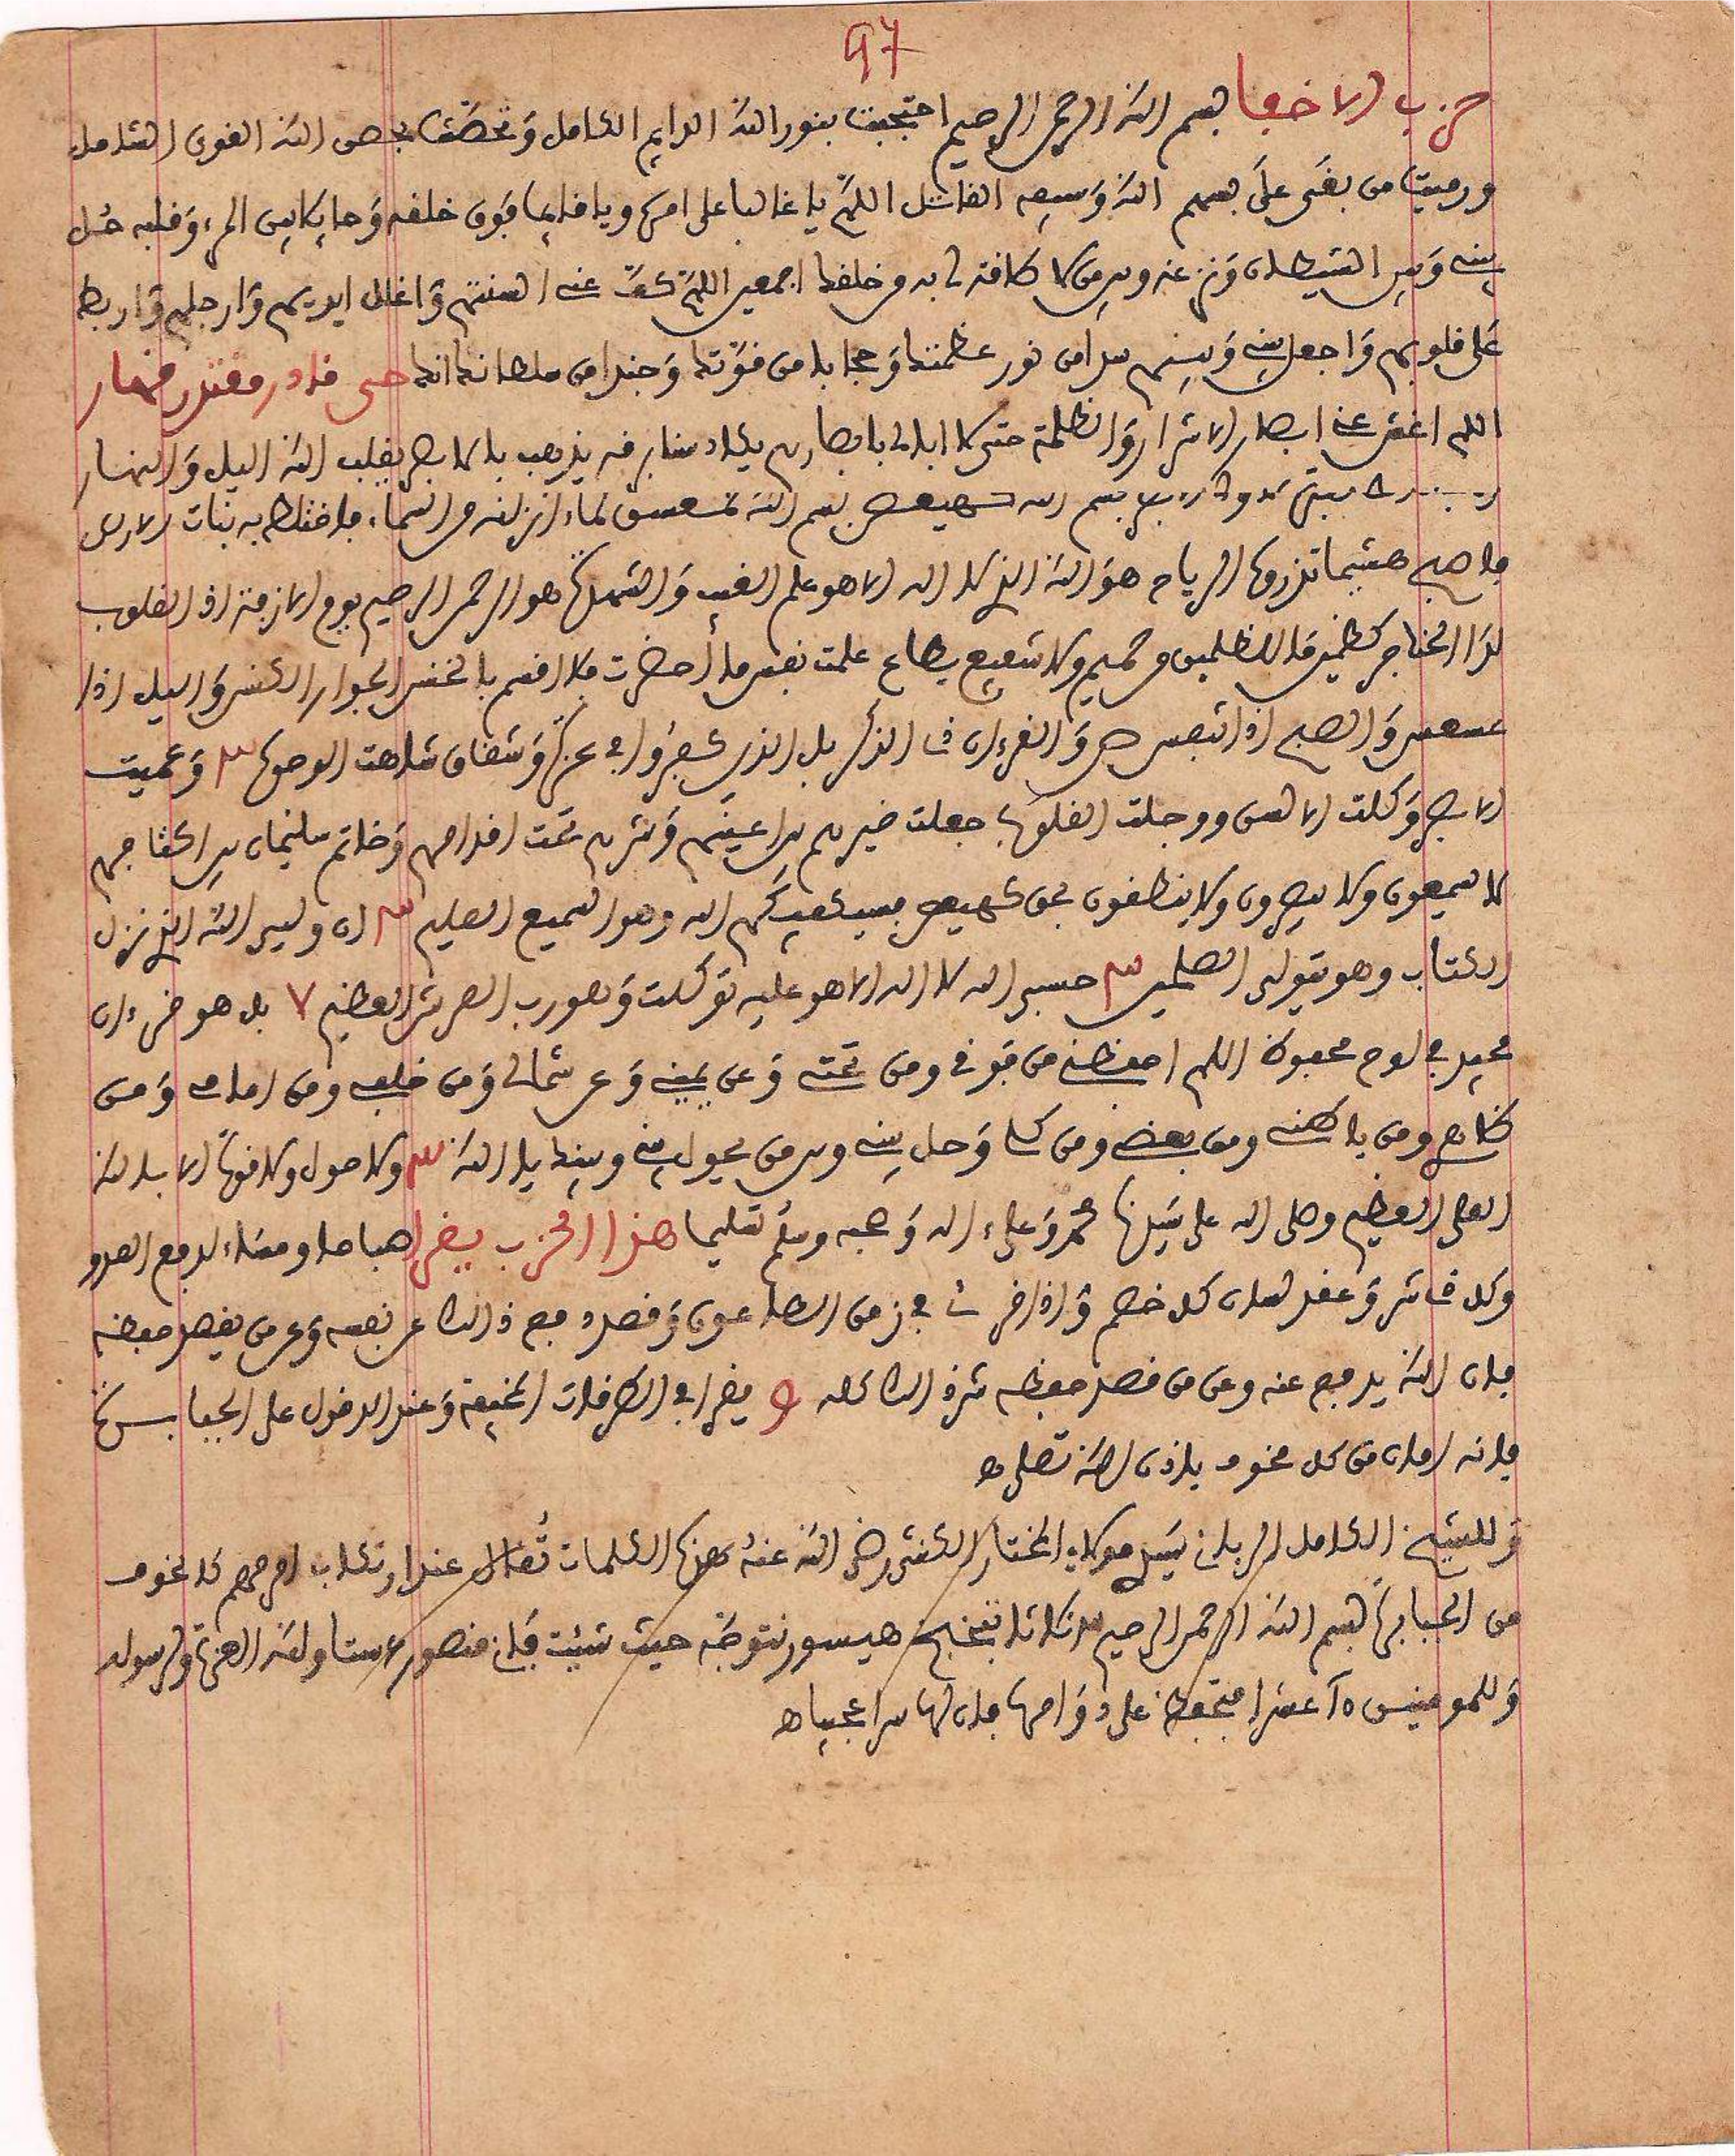 97
حزب الاخفا بسم الله الرحمن الرحيم احتجبت بنور الله الدايم الكامل وتحصنت بحصن الله القوى الشامل
ورميت من بغى على بسهم الله وسيفه القاتل اللهم يا غالبا على امره ويا قايما فوق خلقه وحايلا بين المرء وقلبه حل
بينى وبين الشيطان ونزغه وبين من لا طاقة لى به من خلقك اجمعين اللهم كف عنى السنتهم واغلل ايديهم وارجلهم واربط
على قلوبهم واجعل بينى وبينهم سدا من نور عظمتك وحجابا من قوتك وجندا من سلطانك انك حى قادر مقتدر قهار
اللهم اغش عنى ابصار الاشرار والظلمة حتى لا ابالى بابصارهم يكاد سنا برقه يذهب بالابصار يقلب الله اليل والنهار
بسم الله كهيعص بسم الله حمعسق كماء انزلنه من السماء فاختلط به نبات الارض
فاصبح هشيما تذروه الرياح هو الله الذى لا اله الا هو علم الغيب والشهدة هو الرحمن الرحيم يوم الازفة اذ القلوب
لدا الحناجر كظمين ما للظلمين من حميم ولا شفيع يطاع علمت نفس ما أحضرت فلا اقسم بالخنس الجوار الكنس واليل اذا
عسعس والصبح اذا تنفس ص والقرءان ذى الذكر بل الذين كفروا فى عزة وشقاق شاهت الوجوه ٣ وعميت
الابصار وكلت الالسن ووجلت القلوب جعلت خيرهم بين اعينهم وشرهم تحت اقدامهم وخاتم سليمان بين اكتافهم
لا يسمعون ولا يبصرون ولا ينطقون بحق كهيعص فسيكفيكهم الله وهو السميع العليم ٣ ان وليى الله الذى نزل
الكتاب وهو يتولى الصلحين ٣ حسبى الله لا اله الا هو عليه توكلت وهو رب العرش العظيم ٧ بل هو قرءان
مجيد فى لوح محفوظ اللهم احفظنى من فوقى ومن تحتى وعن يمينى وعن شمالى ومن خلفى ومن امامى ومن
ظاهرى ومن باطنى ومن بعضى ومن كلى وحل بينى وبين من يحول بينى وبينك يا الله ٣ ولا حول ولا قوة الا بالله
العلى العظيم وصلى الله على سيدنا محمد وعلى ءاله وصحبه وسلم تسليما هذا الحزب يقرا صباحا ومساء لدفع العدو
وكل شر وعقد لسان كل خصم واذا قرئ فى زمن الطاعون وقصد دفع ذالك عن نفسه وعن من يقصد حفظه
فان الله يدفع عنه وعن من قصد حفظه شر ذالك كله و يقرا فى الطرقات المخيفة وعند الدخول على الجبابرة
فانه امان من كل مخوف باذن الله تعلى ه
وللشيخ الكامل الربانى سيدى مولاى المختار الكنتى رضى الله عنه هذه الكلمات تقال عند ارتكاب امر مهم كالخوف
من الجبابرة بسم الله الرحمن الرحيم ثلاثا حيث شئت فانك منصور ستا ولله العزة ولرسوله
وللمومنين عشرا فتحفظ على دوامها فان لها سرا عجيبا ه